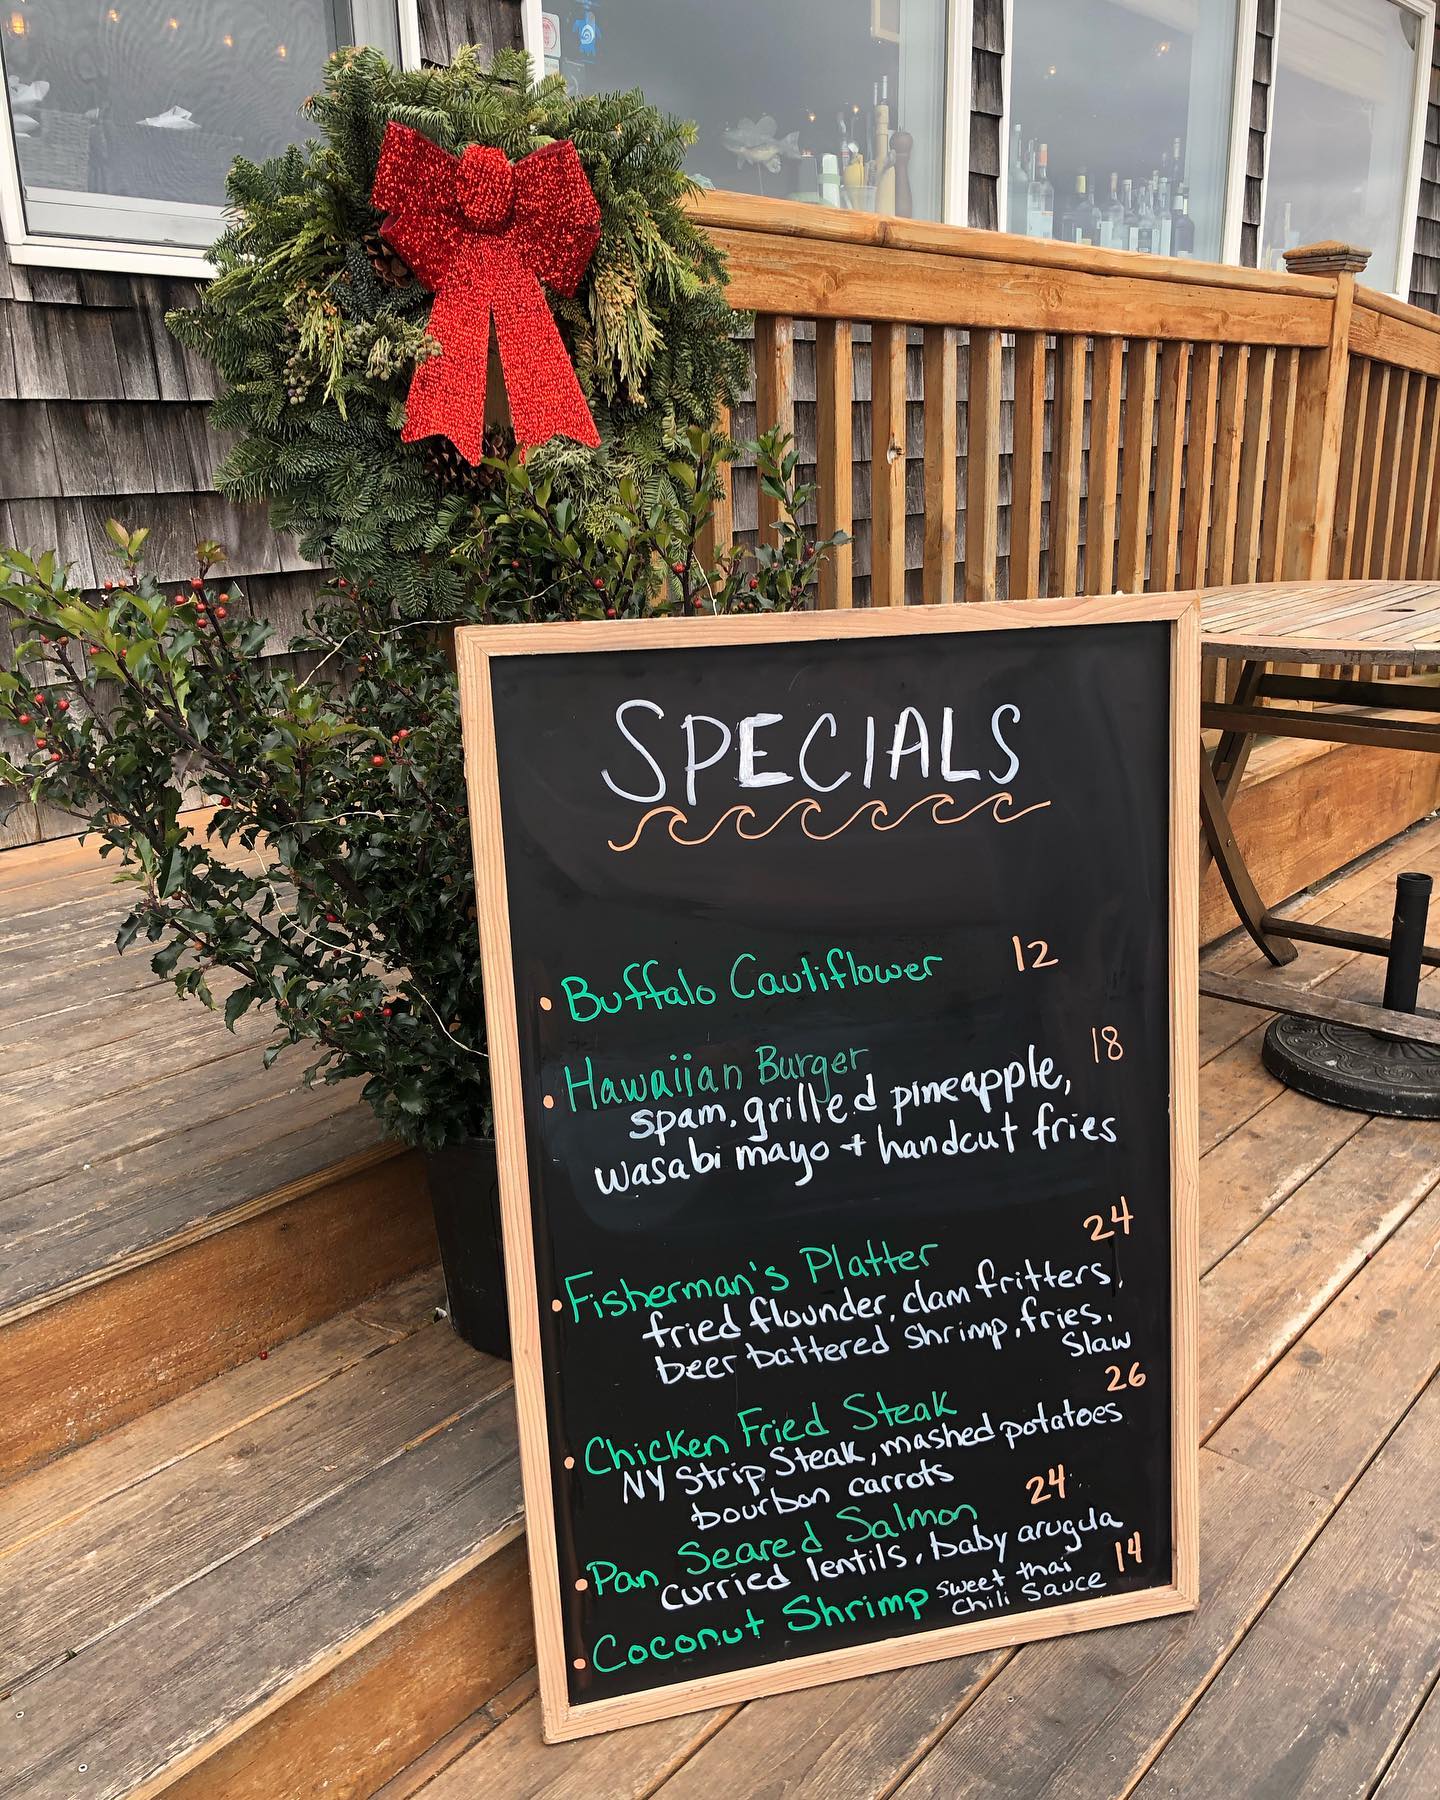 SPECIALS
• Buffalo Cautiflower 12
• Hawaiian Burger 18
spam, grilled pineapple,
wasabi mayo + handcut fries
• Fisherman's Platter 24
fried flounder, clam fritters,
beer battered shrimp, fries,
Slaw
• Chicken Fried Steak 26
NY Strip Steak, mashed potatoes
bourbon carrots
• Pan Seared Salmon 24
curried lentils, baby arugula
• Coconut Shrimp sweet thai 14
Chili Sauce